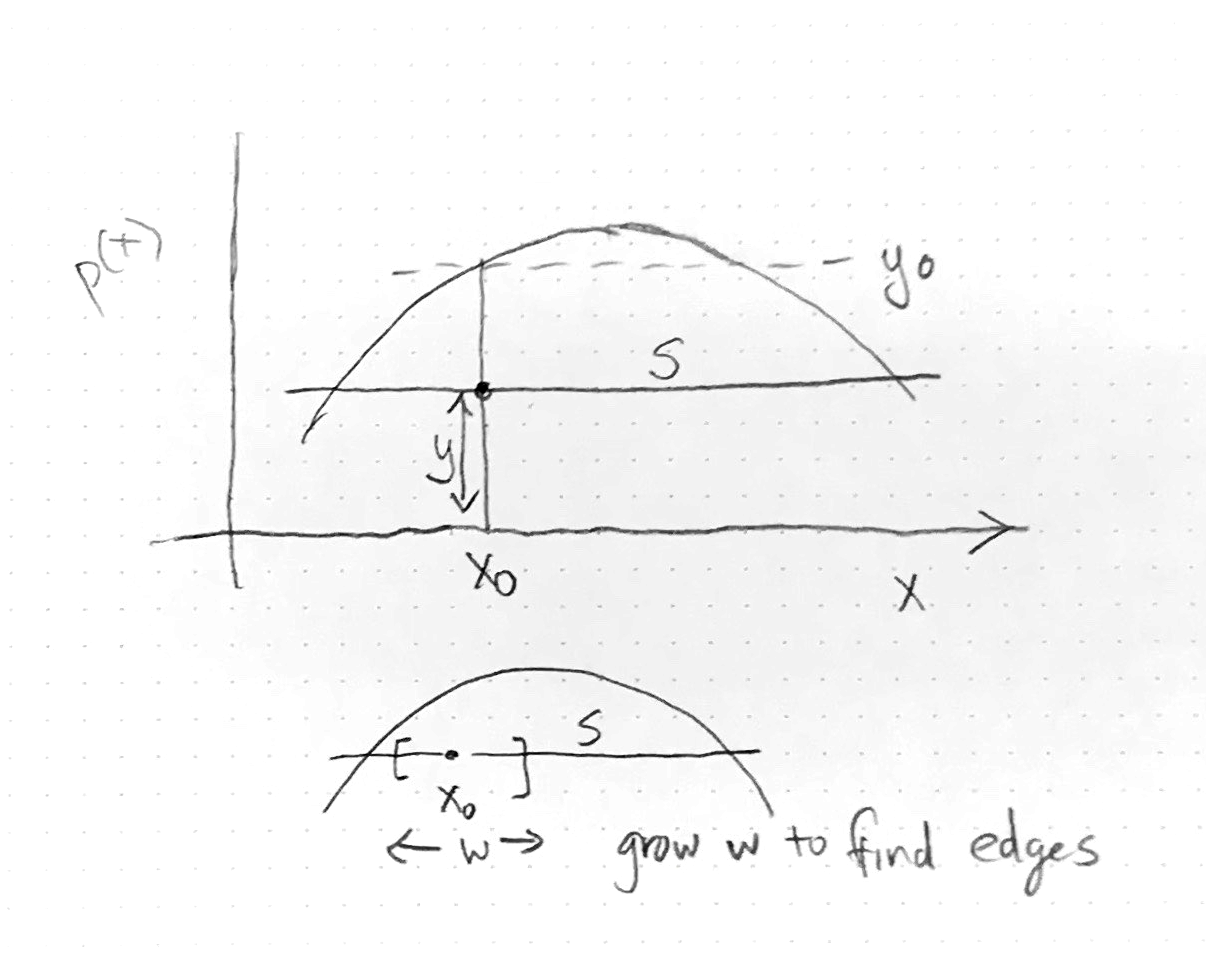 p(t)
y₀
S
y
x₀
x
S
x₀
← w → grow w to find edges